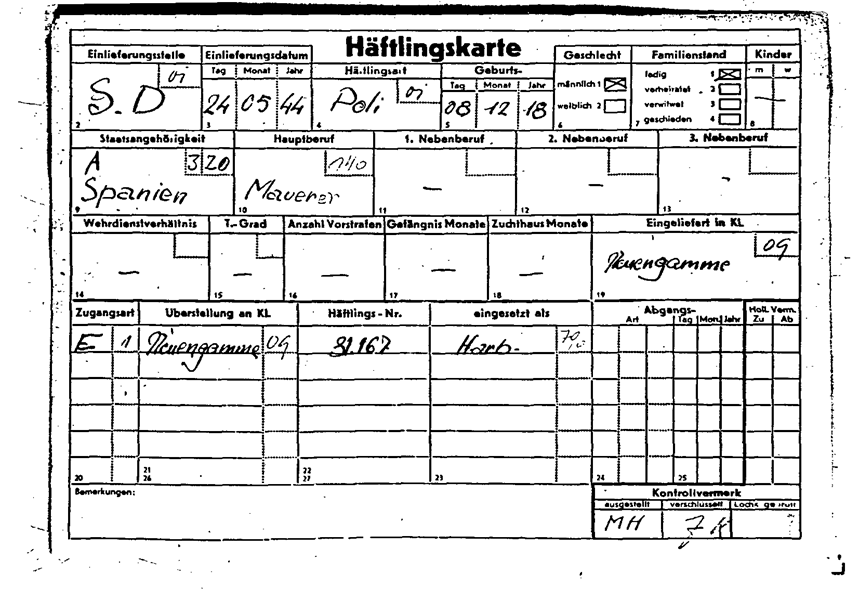 Häftlingskarte
Einlieferungsstelle Einlieferungsdatum Häftlingsart Geburts- Geschlecht Familienstand Kinder
Tag Monat Jahr Tag Monat Jahr m w
S.D 01 24 05 44 Poli 01 08 12 18 männlich 1 ☒ ledig 1 ☒ —
weiblich 2 ☐ verheiratet 2 ☐
verwitwet 3 ☐
geschieden 4 ☐
2 3 4 5 6 7 8
Staatsangehörigkeit Hauptberuf 1. Nebenberuf 2. Nebenberuf 3. Nebenberuf
A 320 140
Spanien Maurer — — —
9 10 11 12 13
Wehrdienstverhältnis T.-Grad Anzahl Vorstrafen Gefängnis Monate Zuchthaus Monate Eingeliefert in KL
— — — — — Neuengamme 09
14 15 16 17 18 19
Zugangsart Überstellung an KL Häftlings-Nr. eingesetzt als Abgangs- Holl. Verm.
Art Tag Mon. Jahr Zu Ab
E 1 Neuengamme 09 31.167 Harb-
20 21 22 23 24 25
26 27
Bemerkungen: Kontrollvermerk
ausgestellt verschlüsselt Lochk. geprüft
MH